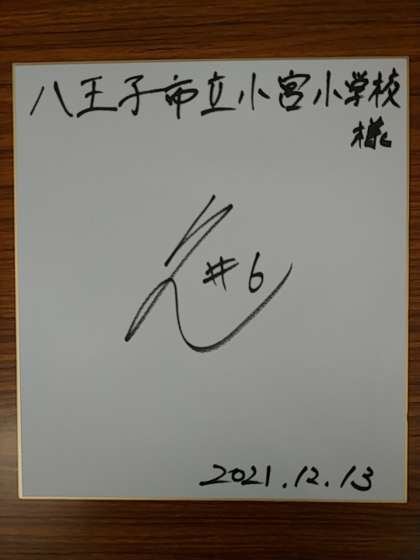 八王子市立小宮小学校
様
#6
2021.12.13